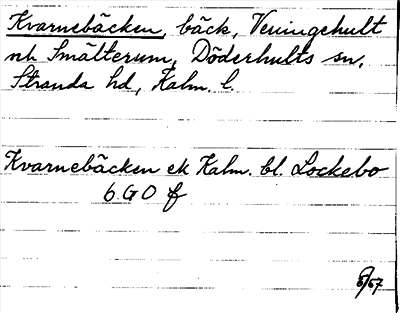 Kvarnebäcken, bäck, Veningehult
nh Smälterum, Döderhults sn,
Stranda hd, Kalm. l.
Kvarnebäcken ek Kalm. bl. Lockebo
6 G O f
/67